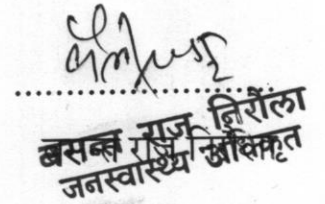 बसन्त राज निरौला
जनस्वास्थ्य अधिकृत